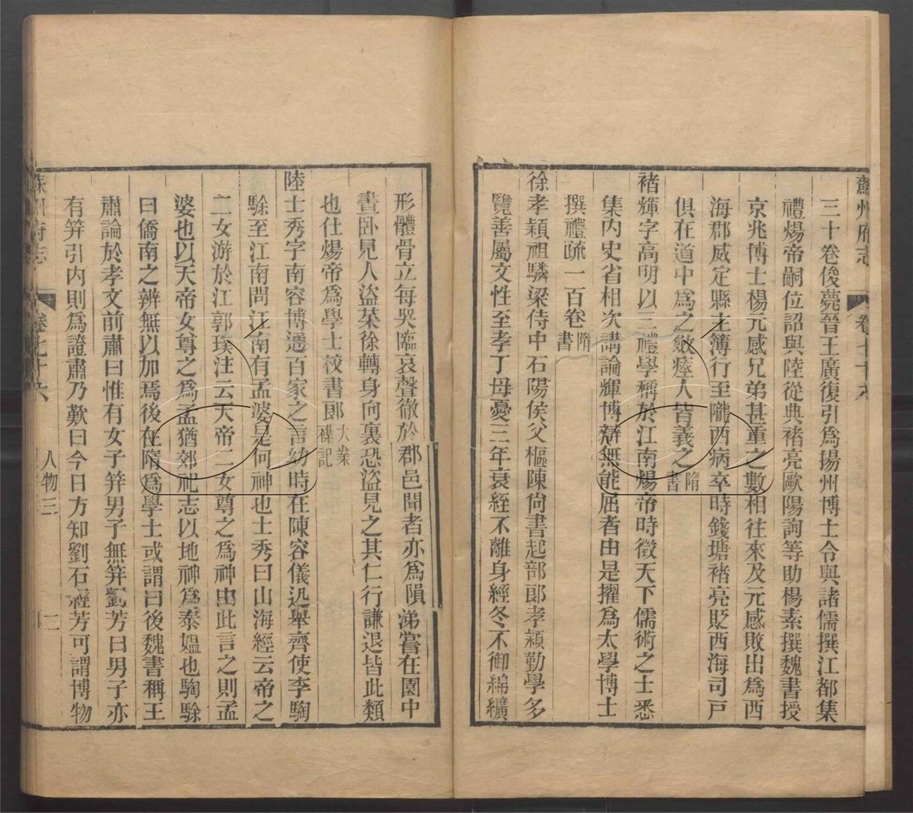 蘇州府志
卷七十六
三十卷俊薨晉王廣復引爲揚州博士令與諸儒撰江都集
禮煬帝嗣位詔與陸從典褚亮歐陽詢等助楊素撰魏書授
京兆博士楊元感兄弟甚重之數相往來及元感敗出爲西
海郡威定縣主簿行至隴西病卒時錢塘褚亮貶西海司戸
俱在道中爲之斂瘞人皆義之隋書
褚輝字高明以三禮學稱於江南煬帝時徵天下儒術之士悉
集内史省相次講論輝博辯無能屈者由是擢爲太學博士
撰禮疏一百卷隋書
徐孝穎祖驎梁侍中石陽侯父樞陳尙書起部郎孝穎勤學多
覽善屬文性至孝丁母憂三年衰絰不離身經冬不御綿纊
形體骨立每哭臨哀聲徹於郡邑聞者亦爲隕涕嘗在園中
晝卧見人盜菜徐轉身向裏恐盜見之其仁行謙退皆此類
也仕煬帝爲學士校書郎大業雜記
陸士秀字南容博通百家之言幼時在陳容儀迅舉齊使李騊
駼至江南問江南有孟婆是何神也士秀曰山海經云帝之
二女游於江郭璞注云天帝二女尊之爲神由此言之則孟
婆也以天帝女尊之爲孟猶郊祀志以地神爲泰媼也騊駼
曰僑南之辨無以加焉後在隋爲學士或謂曰後魏書稱王
肅論於孝文前肅曰惟有女子笄男子無笄劉芳曰男子亦
有笄引内則爲證肅乃歎曰今日方知劉石經芳可謂博物
蘇州府志
卷七十六
人物三
二